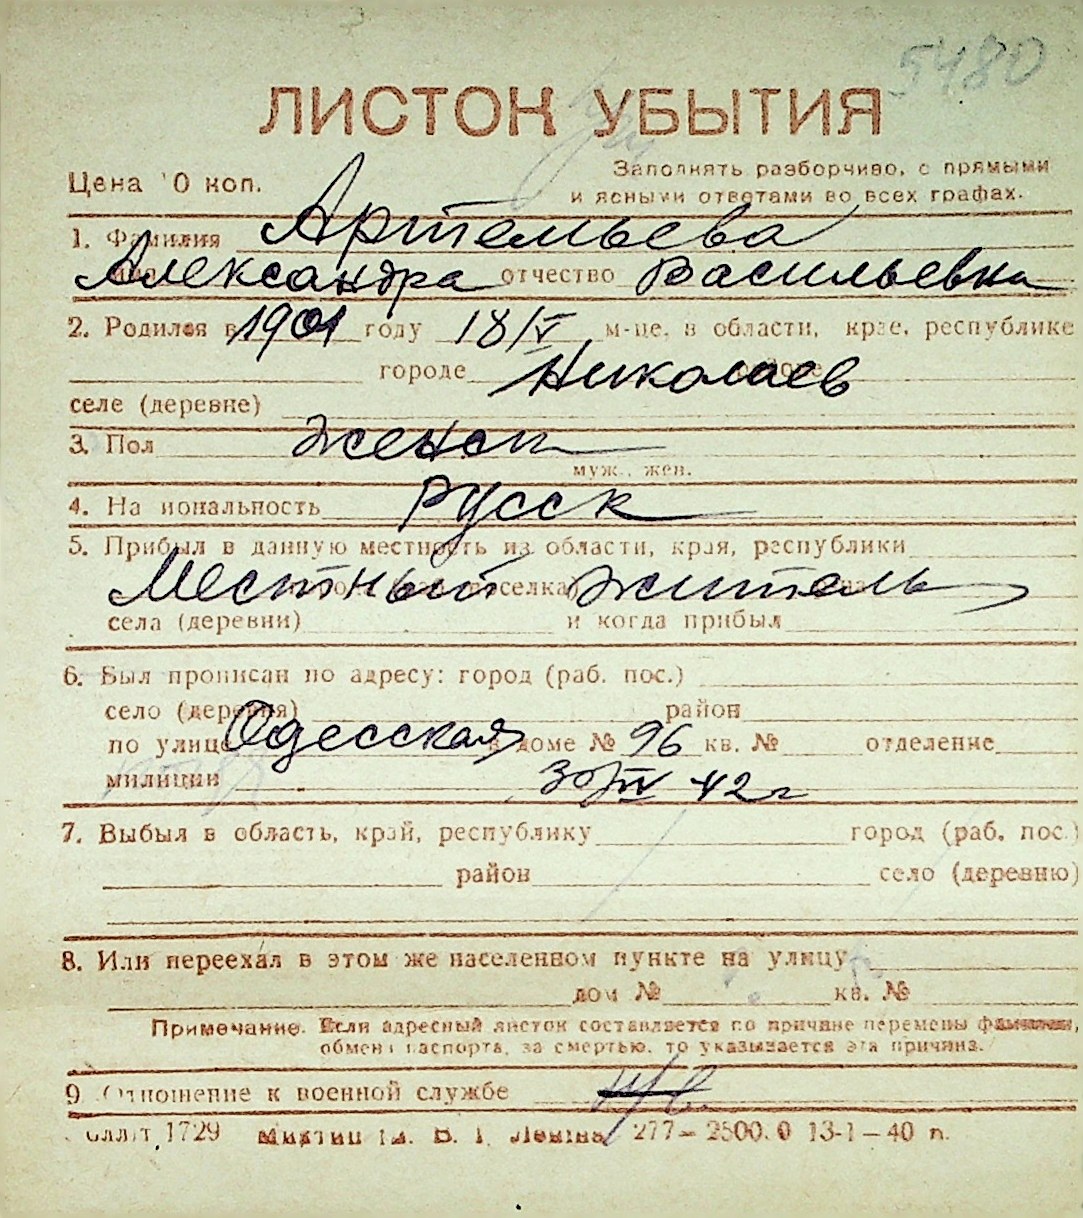 5480
ЛИСТОК УБЫТИЯ
Цена 10 коп.
Заполнять разборчиво, с прямыми
и ясными ответами во всех графах.
1. Фамилия Артемьева
Александра отчество Васильевна
2. Родился в 1901 году 18/V м-це, в области, крае, республике
городе Николаев
селе (деревне)
3. Пол женск
муж., жен.
4. Национальность русск
5. Прибыл в данную местность из области, края, республики
Местный житель
села (деревни) и когда прибыл
6. Был прописан по адресу: город (раб. пос.)
село (деревня) район
по улице Одесская в доме № 96 кв. № отделение
милиции 30/IV 42 г
7. Выбыл в область, край, республику город (раб. пос.)
район село (деревню)
8. Или переехал в этом же населенном пункте на улицу
дом № кв. №
Примечание. Если адресный листок составляется по причине перемены фамилии,
обмена паспорта, за смертью, то указывается эта причина.
9. Отношение к военной службе н/в
1729 277 — 2500.0 13-1—40 п.